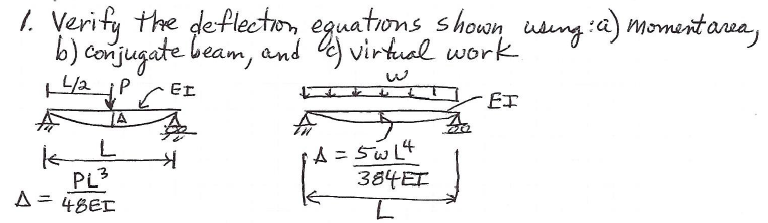 1. Verify the deflection equations shown using: a) moment area,
b) conjugate beam, and c) virtual work
L/2 P EI
Δ
L
Δ = PL³/48EI
w
EI
Δ = 5wL⁴/384EI
L